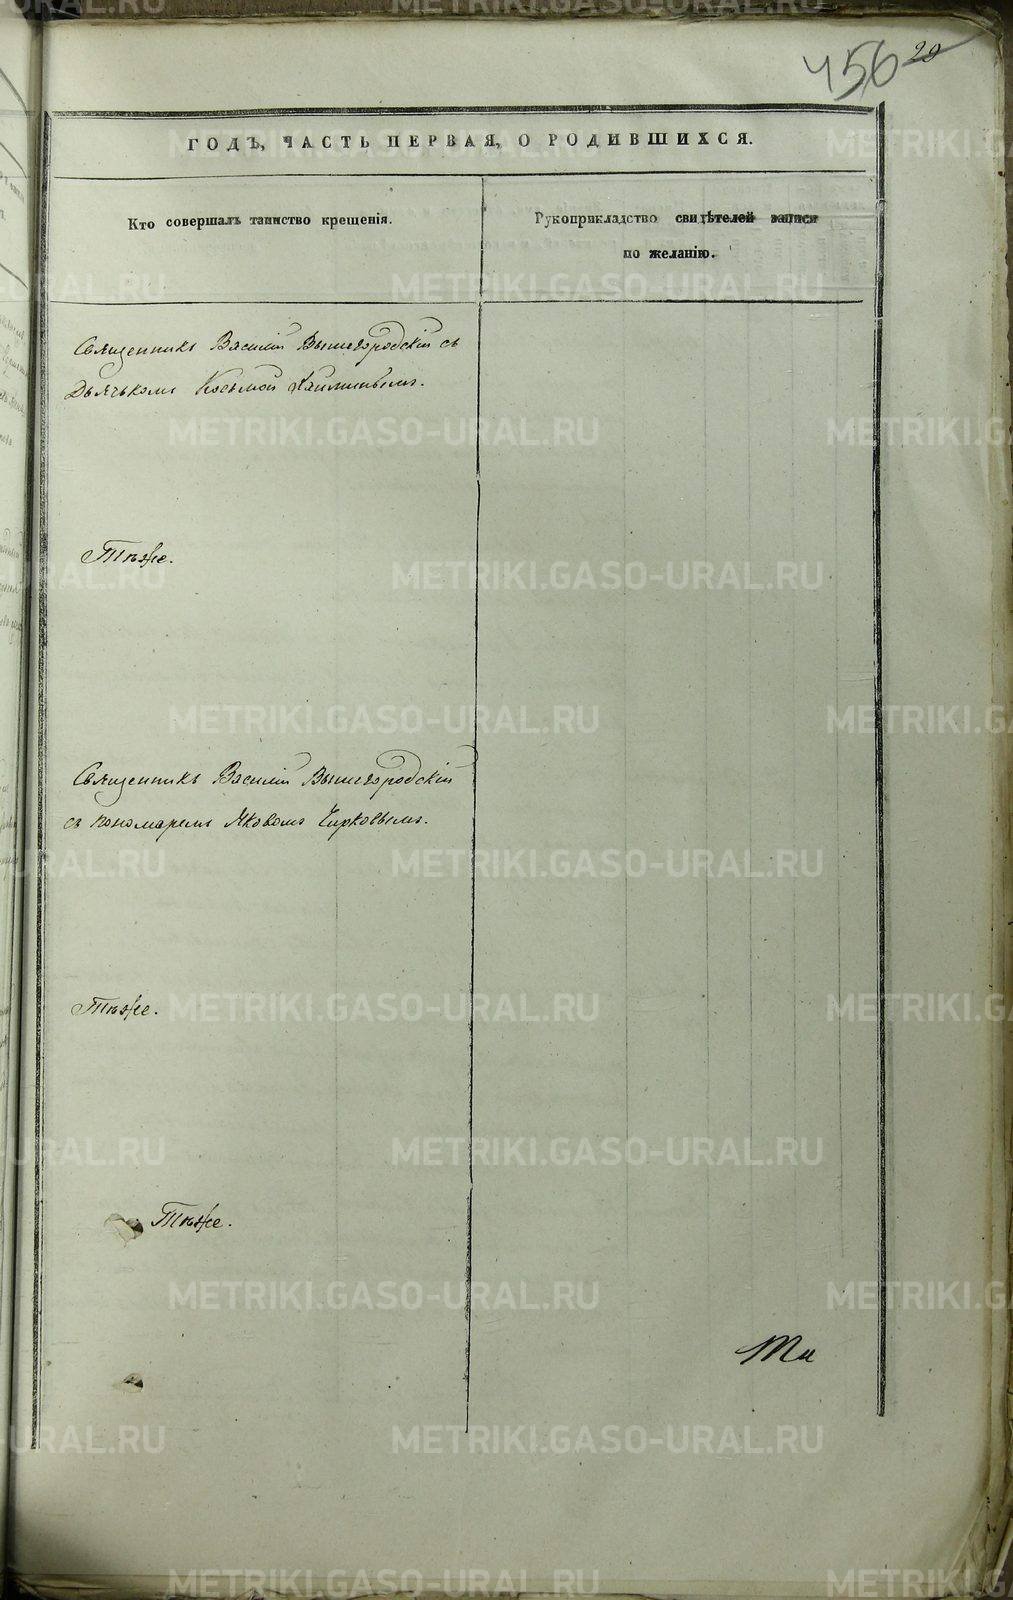 456 29
ГОДЪ, ЧАСТЬ ПЕРВАЯ, О РОДИВШИХСЯ.
Кто совершалъ таинство крещенія.
Рукоприкладство свидѣтелей записи
по желанію.
Священникъ Василій Вышегородскій съ
Дьячькомъ Косьмой
Тѣже.
Священникъ Василій Вышегородскій
съ пономаремъ Яковомъ Чирковымъ.
Тѣже.
Тѣже.
METRIKI.GASO-URAL.RU